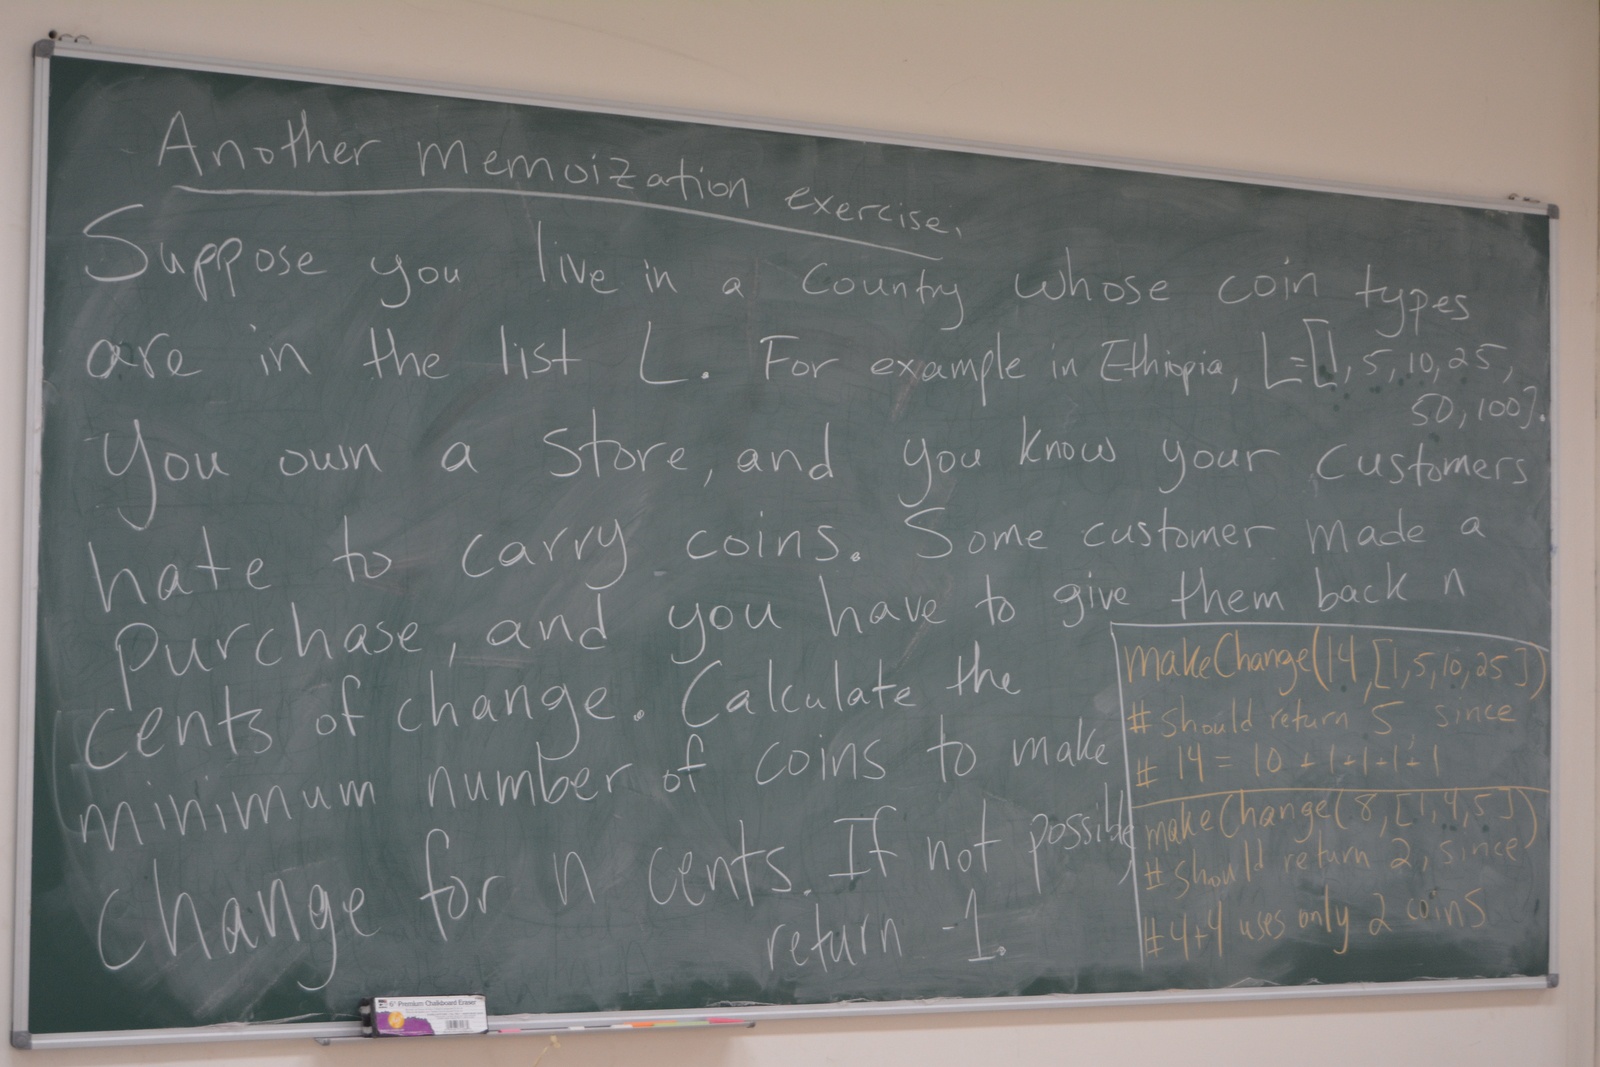 Another memoization exercise.
Suppose you live in a country whose coin types
are in the list L. For example in Ethiopia, L=[1,5,10,25,
50,100].
You own a store, and you know your customers
hate to carry coins. Some customer made a
purchase, and you have to give them back n
cents of change. Calculate the
minimum number of coins to make
change for n cents. If not possible,
return -1.
makeChange(14,[1,5,10,25])
# should return 5, since
# 14 = 10 +1+1+1+1
makeChange(8,[1,4,5])
# should return 2, since
# 4+4 uses only 2 coins
6" Premium Chalkboard Eraser